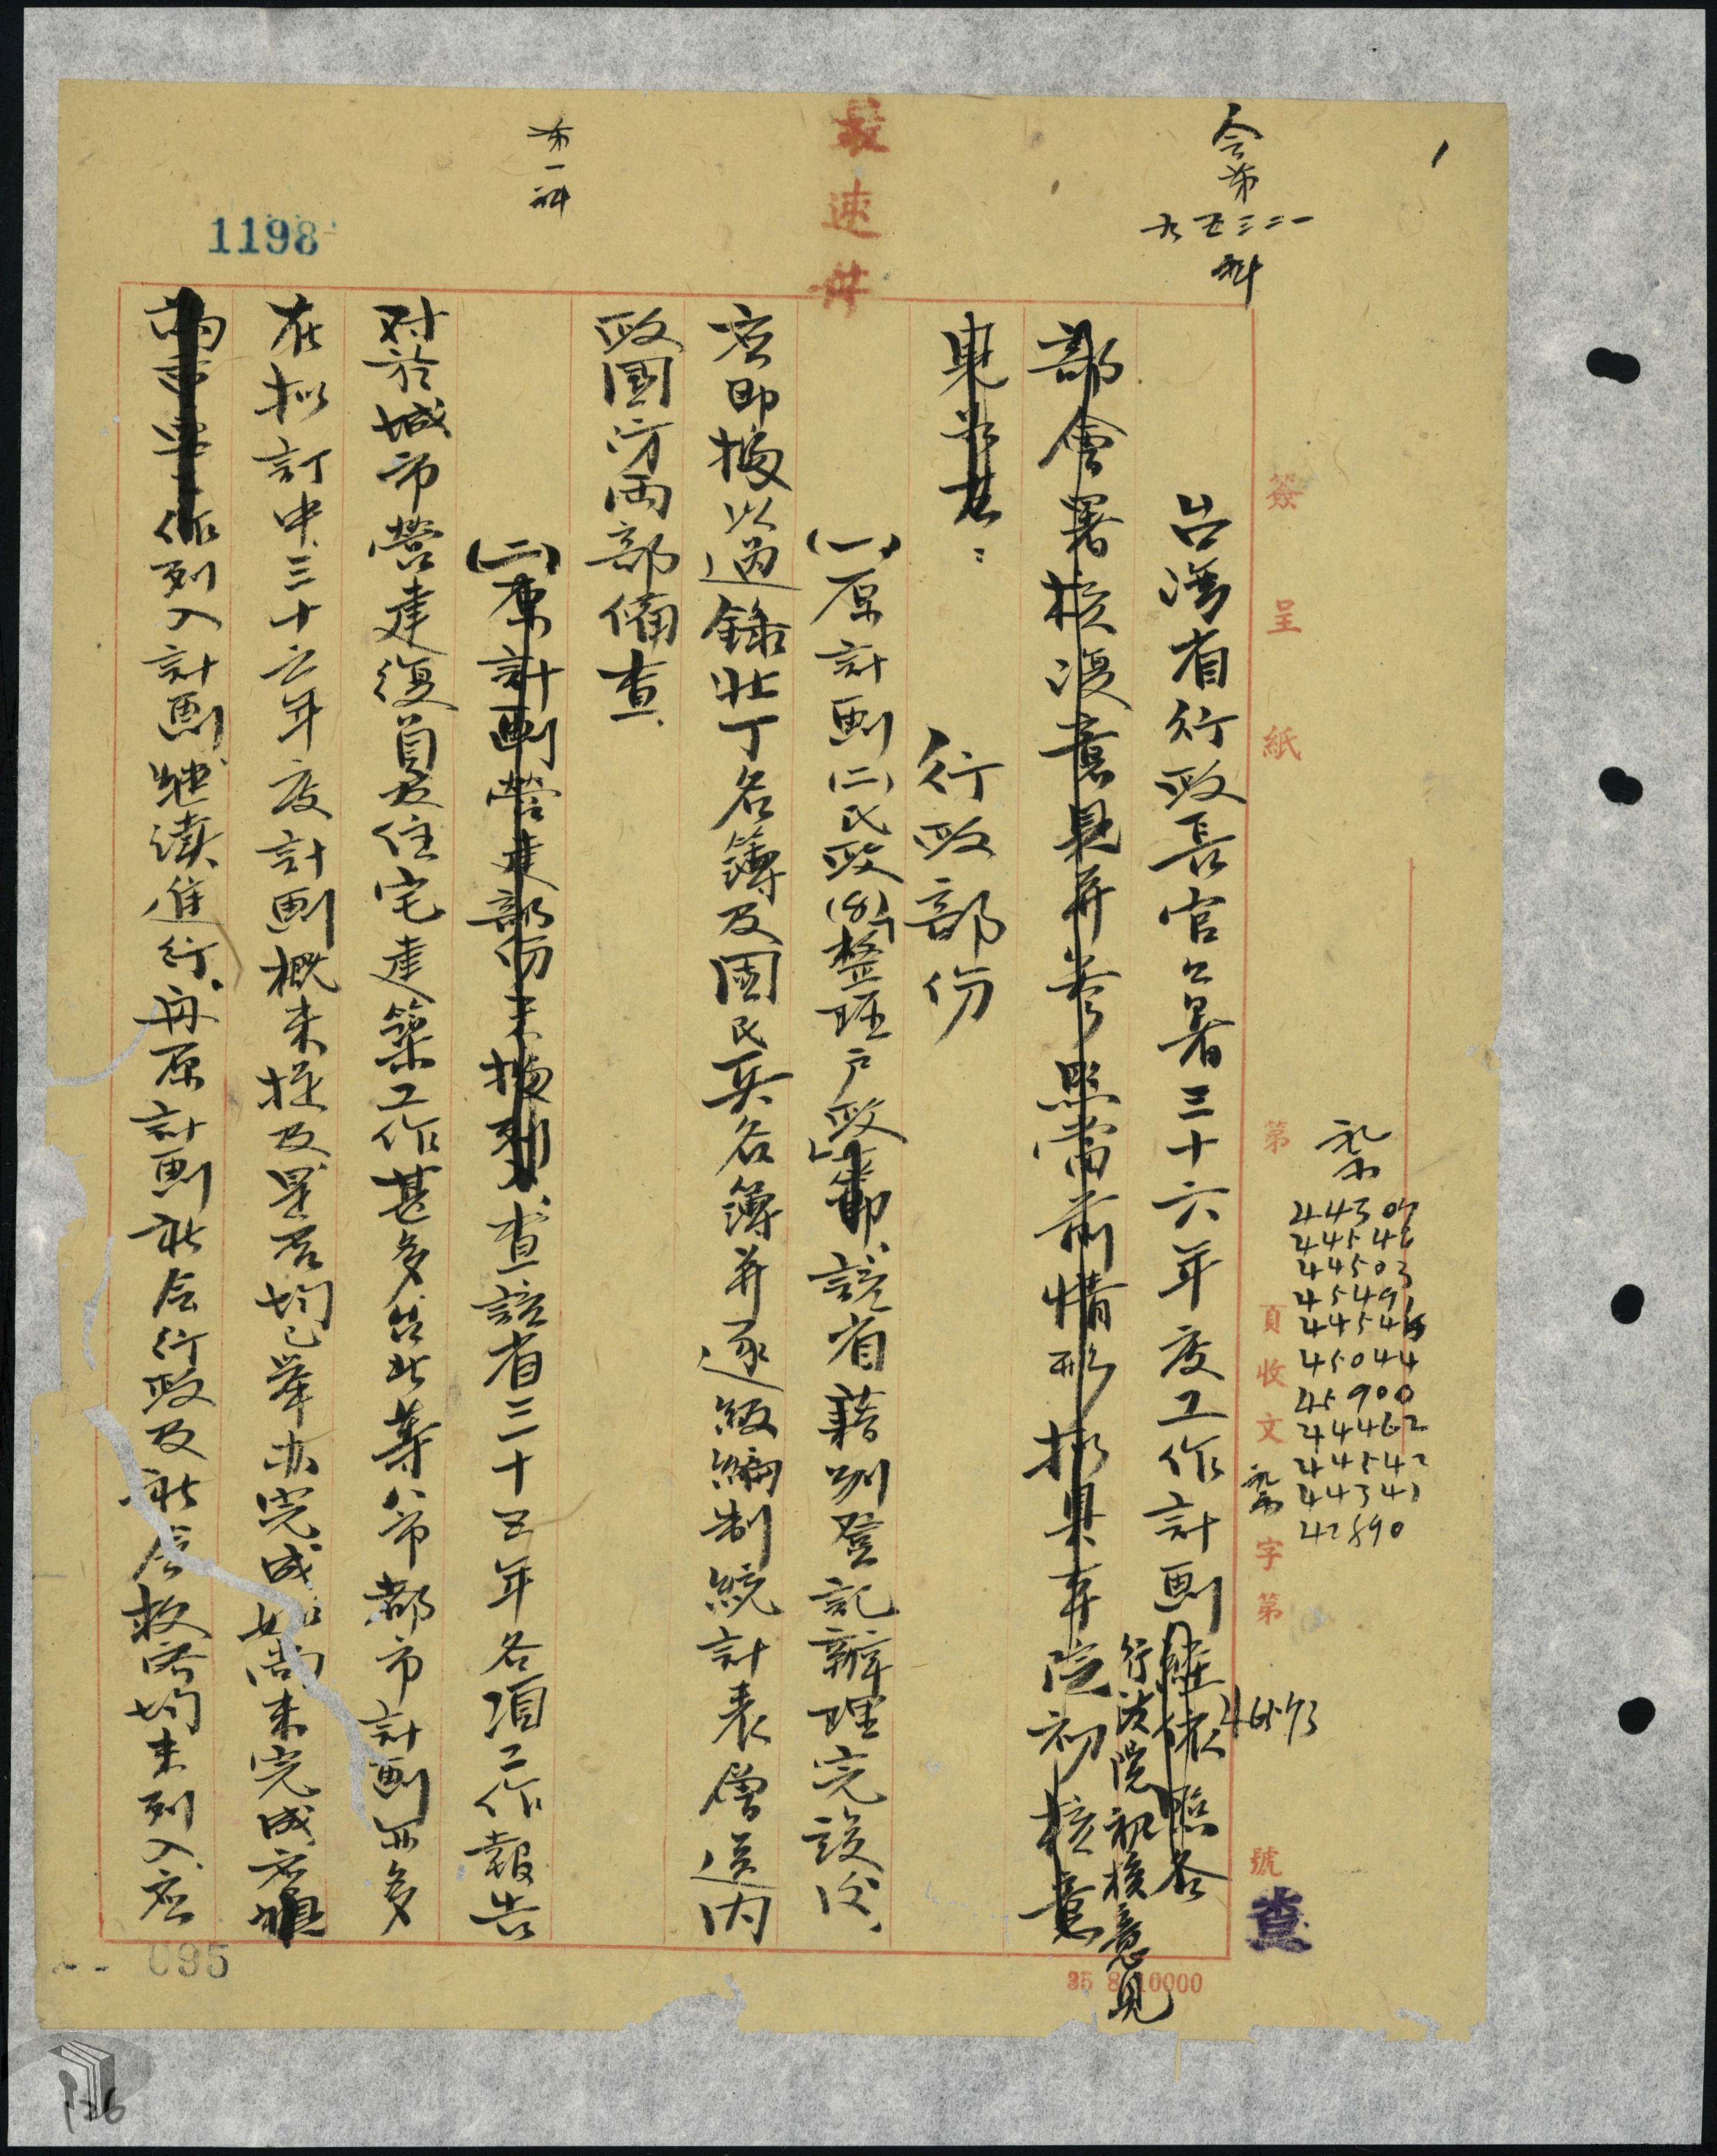 1
令第
一二三五九
科
最速件
第一科
1198
簽呈紙
第 頁收文 字第 號
44307
44546
44503
45493
44545
45044
45900
44462
44542
44341
42890
46573
查
台灣省行政長官公署三十六年度工作計劃經依照各
行政院初核意見
部會署核復意見并參照當前情形擬具本院初核意
見於左：
行政部份
(一)原計劃(二)民政(8)「整理戶政」一節，該省籍別登記辦理完竣後，
應即擬以過錄壯丁名簿及國民兵名簿并逐級編制統計表層送內
政國防兩部備查。
(二)原計劃營建部份未擬列，查該省三十五年各項工作報告
對於城市營建復員及住宅建築工作甚多台北等八市都市計劃亦多
在擬訂中三十六年度計劃概未提及是否均已舉办完成如尚未完成應
作列入計劃，繼續進行。再原計劃社会行政及社会救济均未列入，应
35 8 10000
095
126